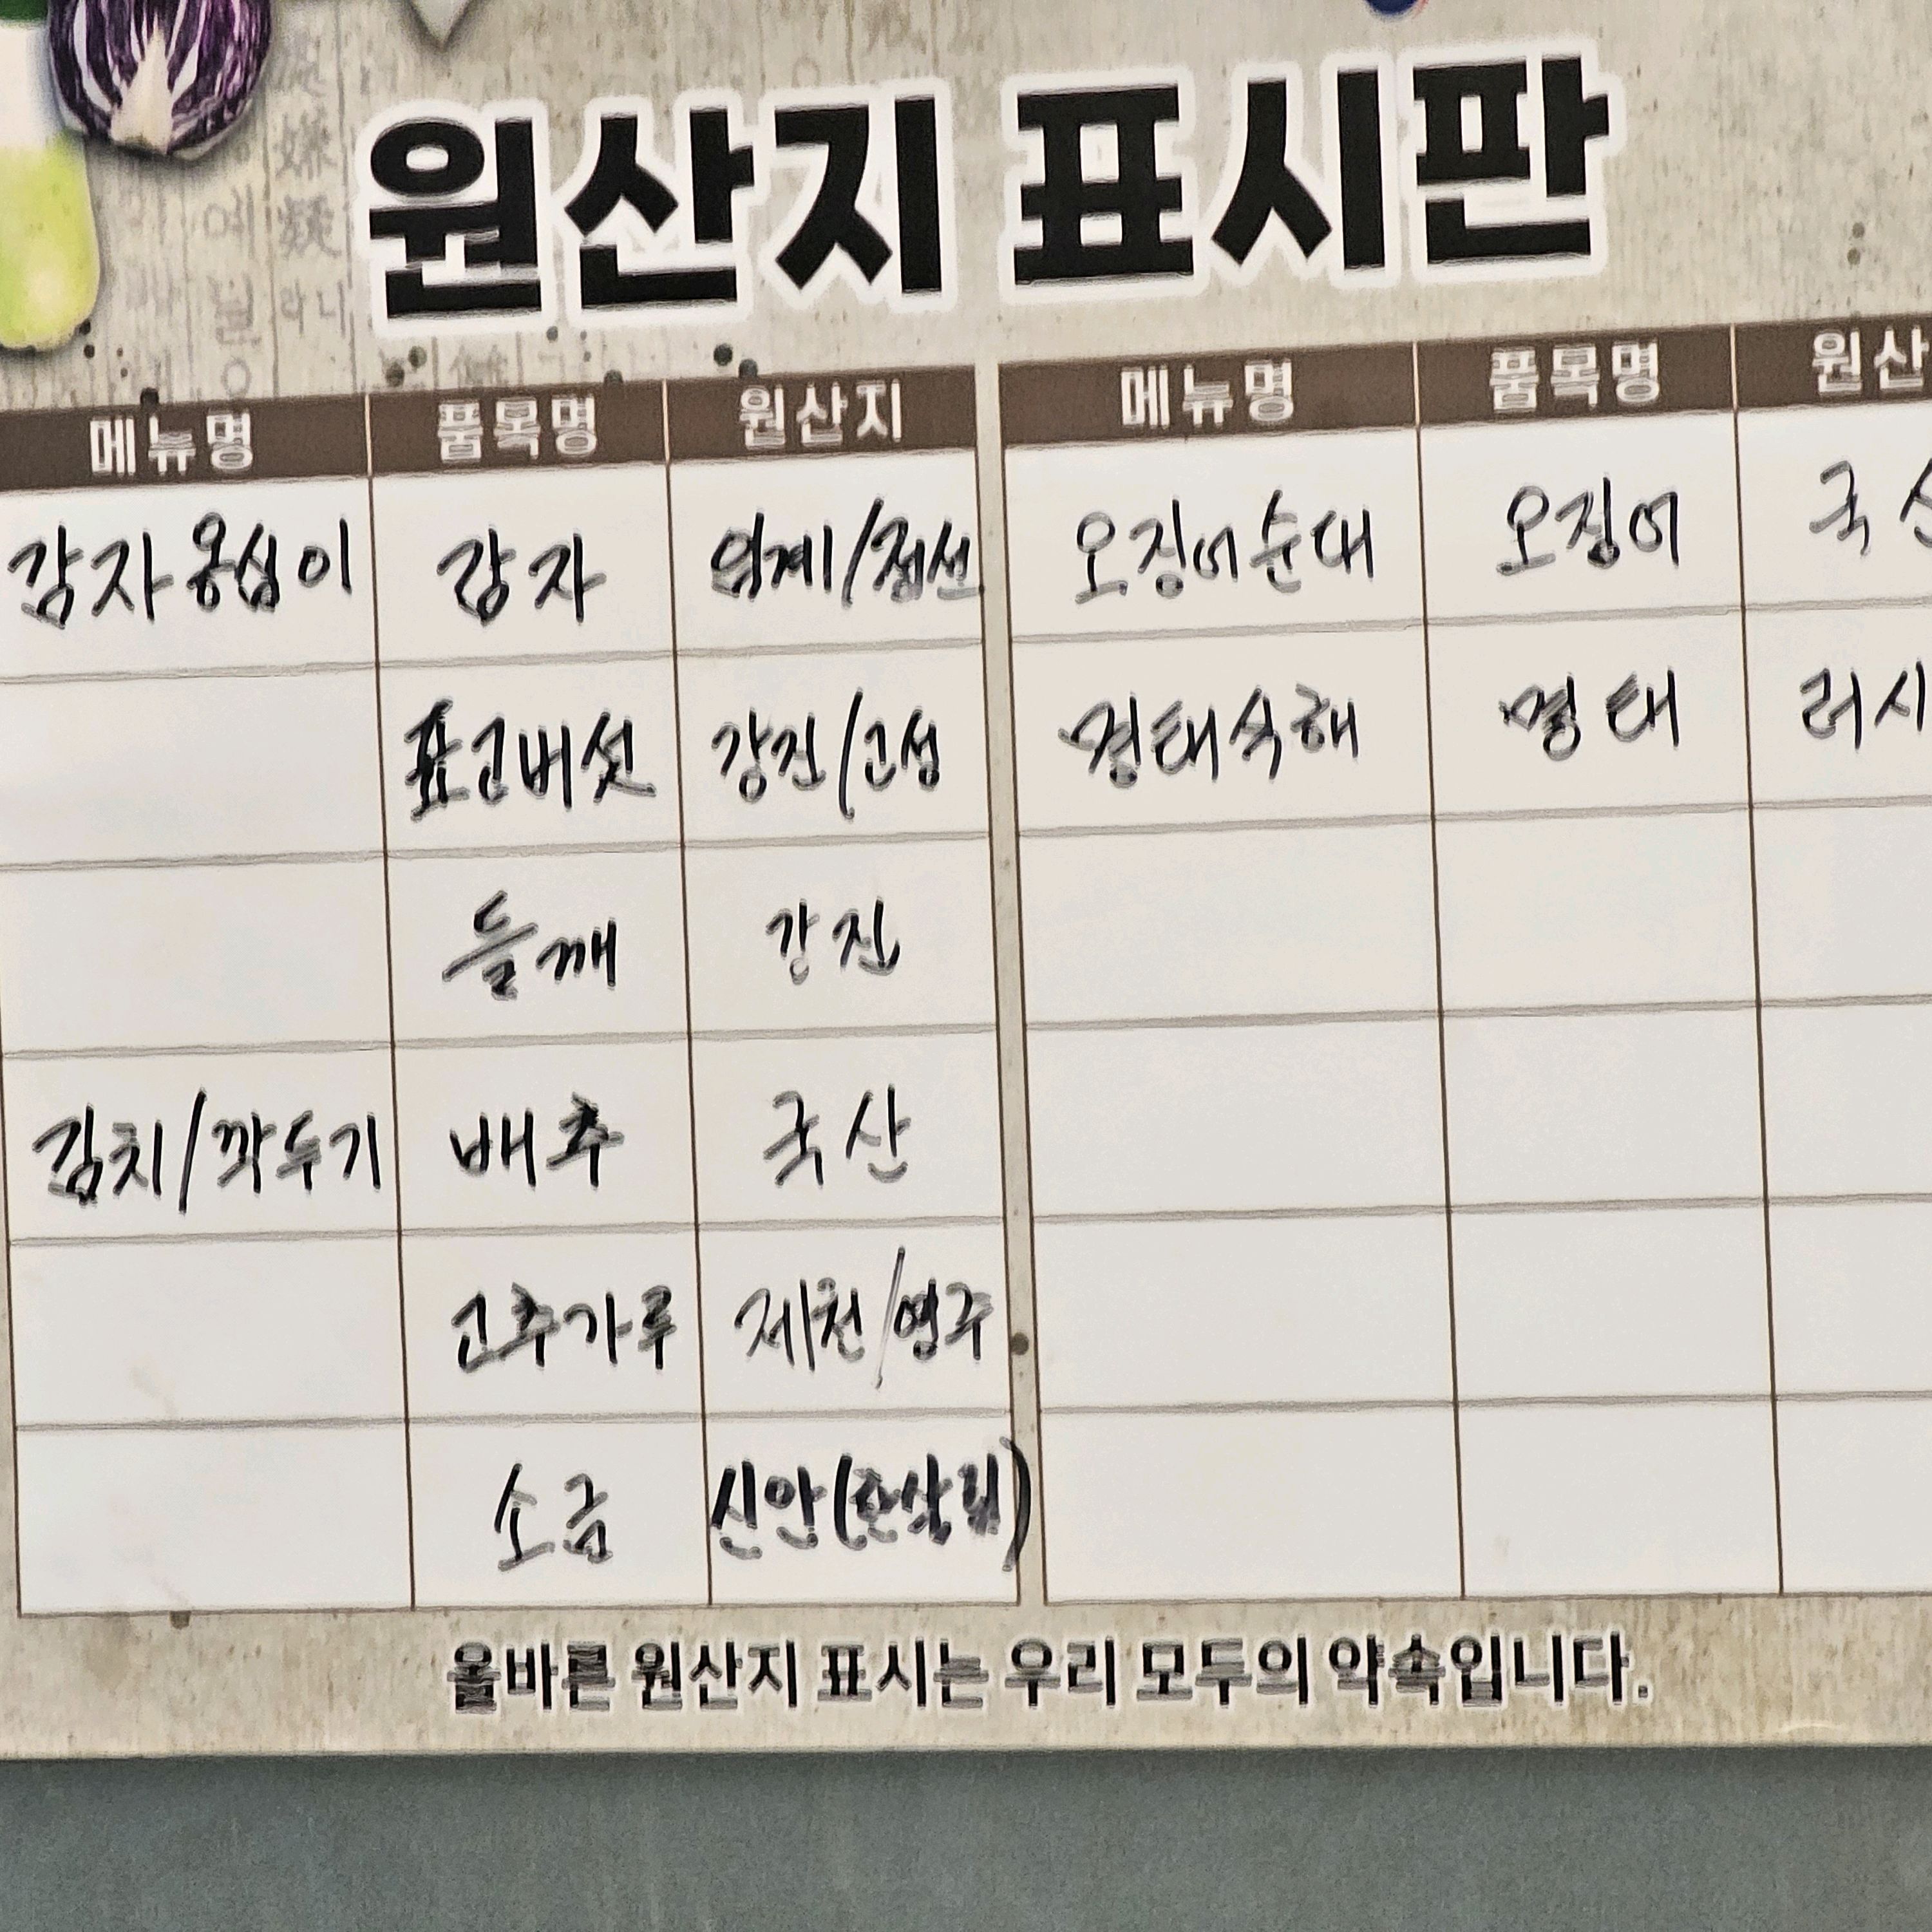 원산지 표시판
메뉴명 품목명 원산지 메뉴명 품목명 원산
감자옹심이 감자 임계/정선 오징어순대 오징어 국
표고버섯 강진/고성 명태식해 명태 러시
들깨 강진
김치/깍두기 배추 국산
고추가루 제천/영주
소금 신안(한살림)
올바른 원산지 표시는 우리 모두의 약속입니다.